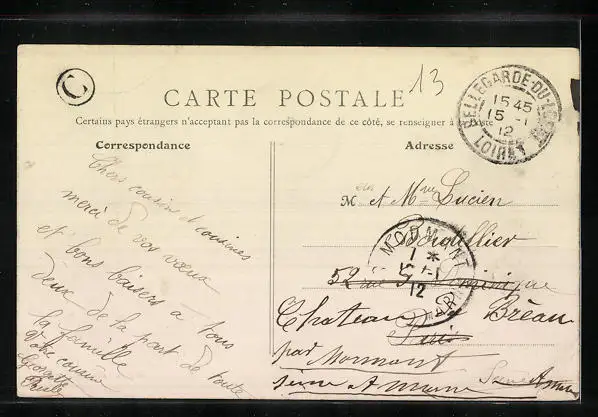 13
CARTE POSTALE
Certains pays étrangers n'acceptant pas la correspondance de ce côté, se renseigner à la poste
Correspondance
Adresse
C
BELLEGARDE-DU-LOIRET
15 45
15 -1
12
LOIRET
Chers cousin et cousines
merci de vos vœux
et bons baisers a tous
deux de la part de toute
la famille
Votre cousine
M et Mme Lucien
MORMANT
1 *
15 -1
12
52 rue
Chateau Bréau
Paris
par Mormant
Seine et Marne